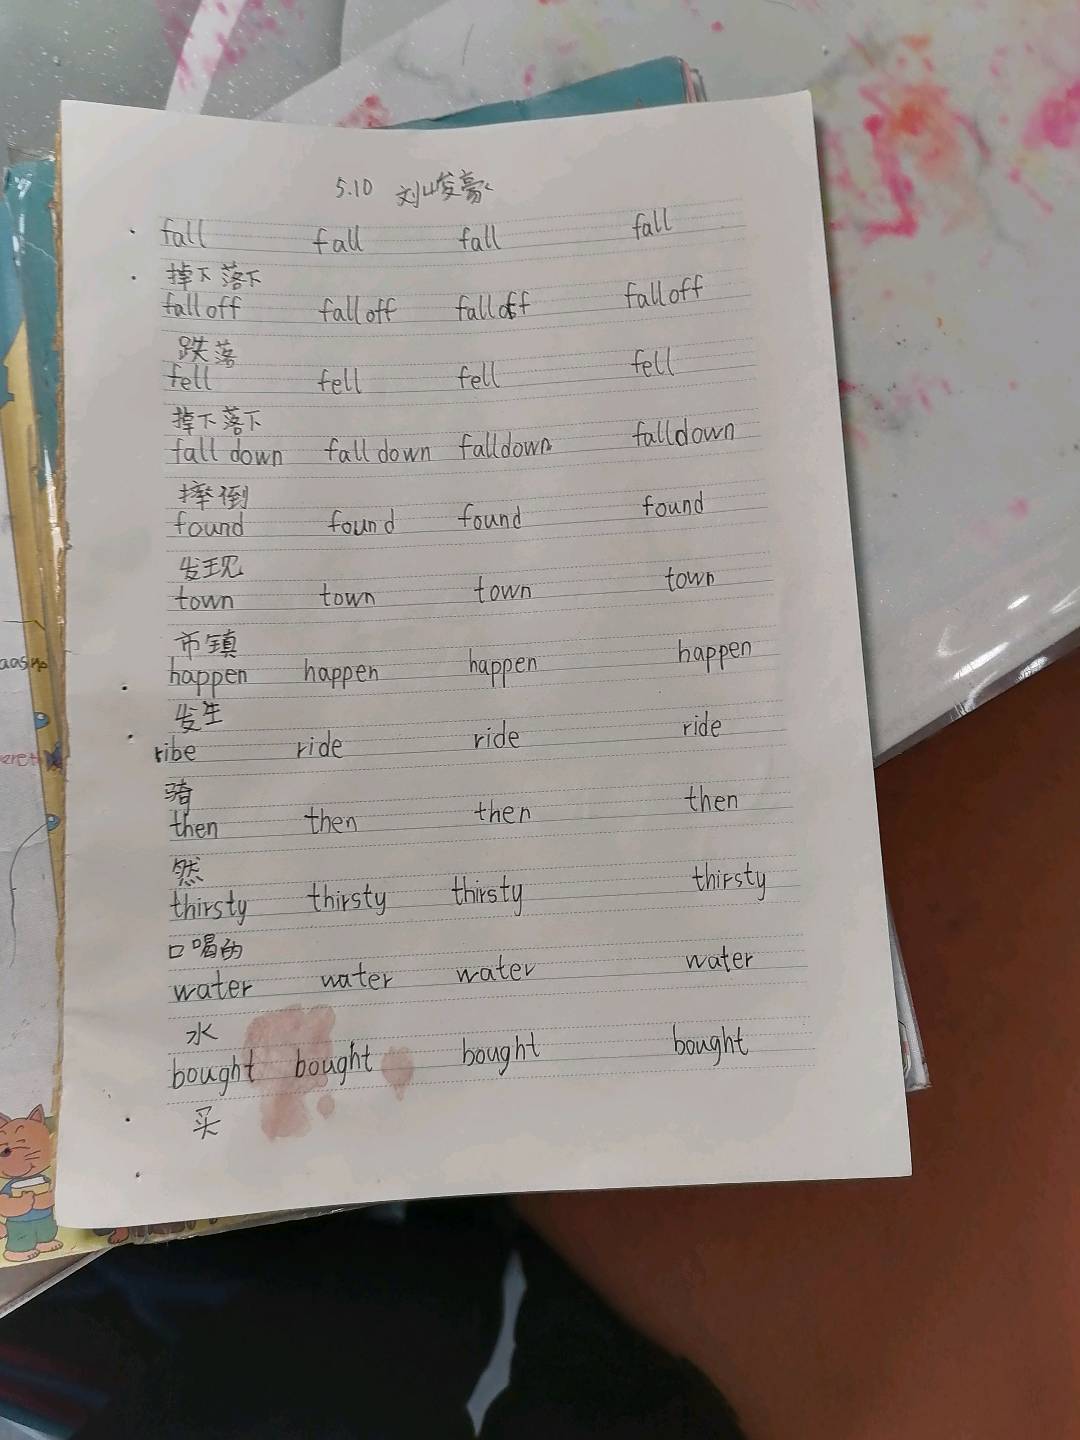 5.10 刘峻豪
fall fall fall fall
掉下落下
fall off fall off fall off fall off
跌落
fell fell fell fell
掉下落下
fall down fall down falldown falldown
摔倒
found found found found
发现
town town town town
市镇
happen happen happen happen
发生
ribe ride ride ride
骑
then then then then
然
thirsty thirsty thirsty thirsty
口喝的
water water water water
水
bought bought bought bought
买